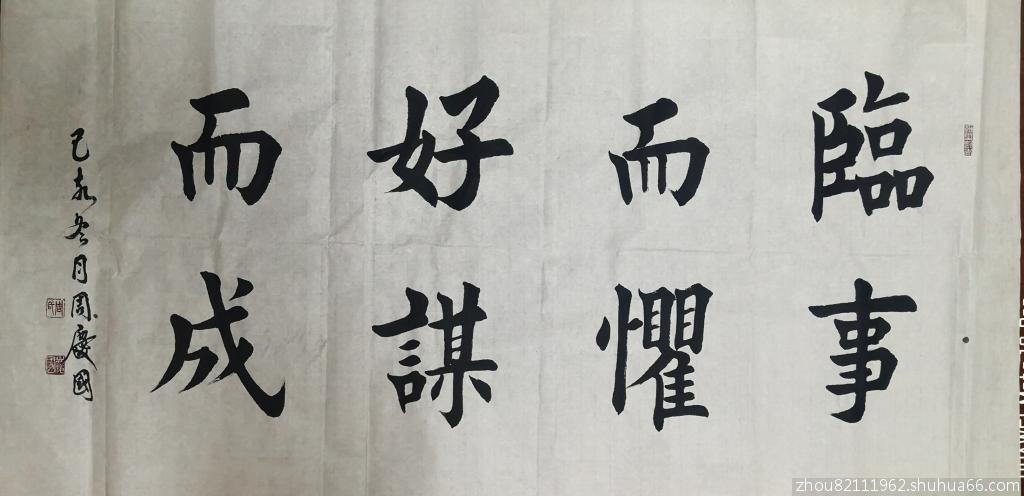 臨事
而懼
好謀
而成
己亥冬月周慶國
zhou82111962.shuhua66.com